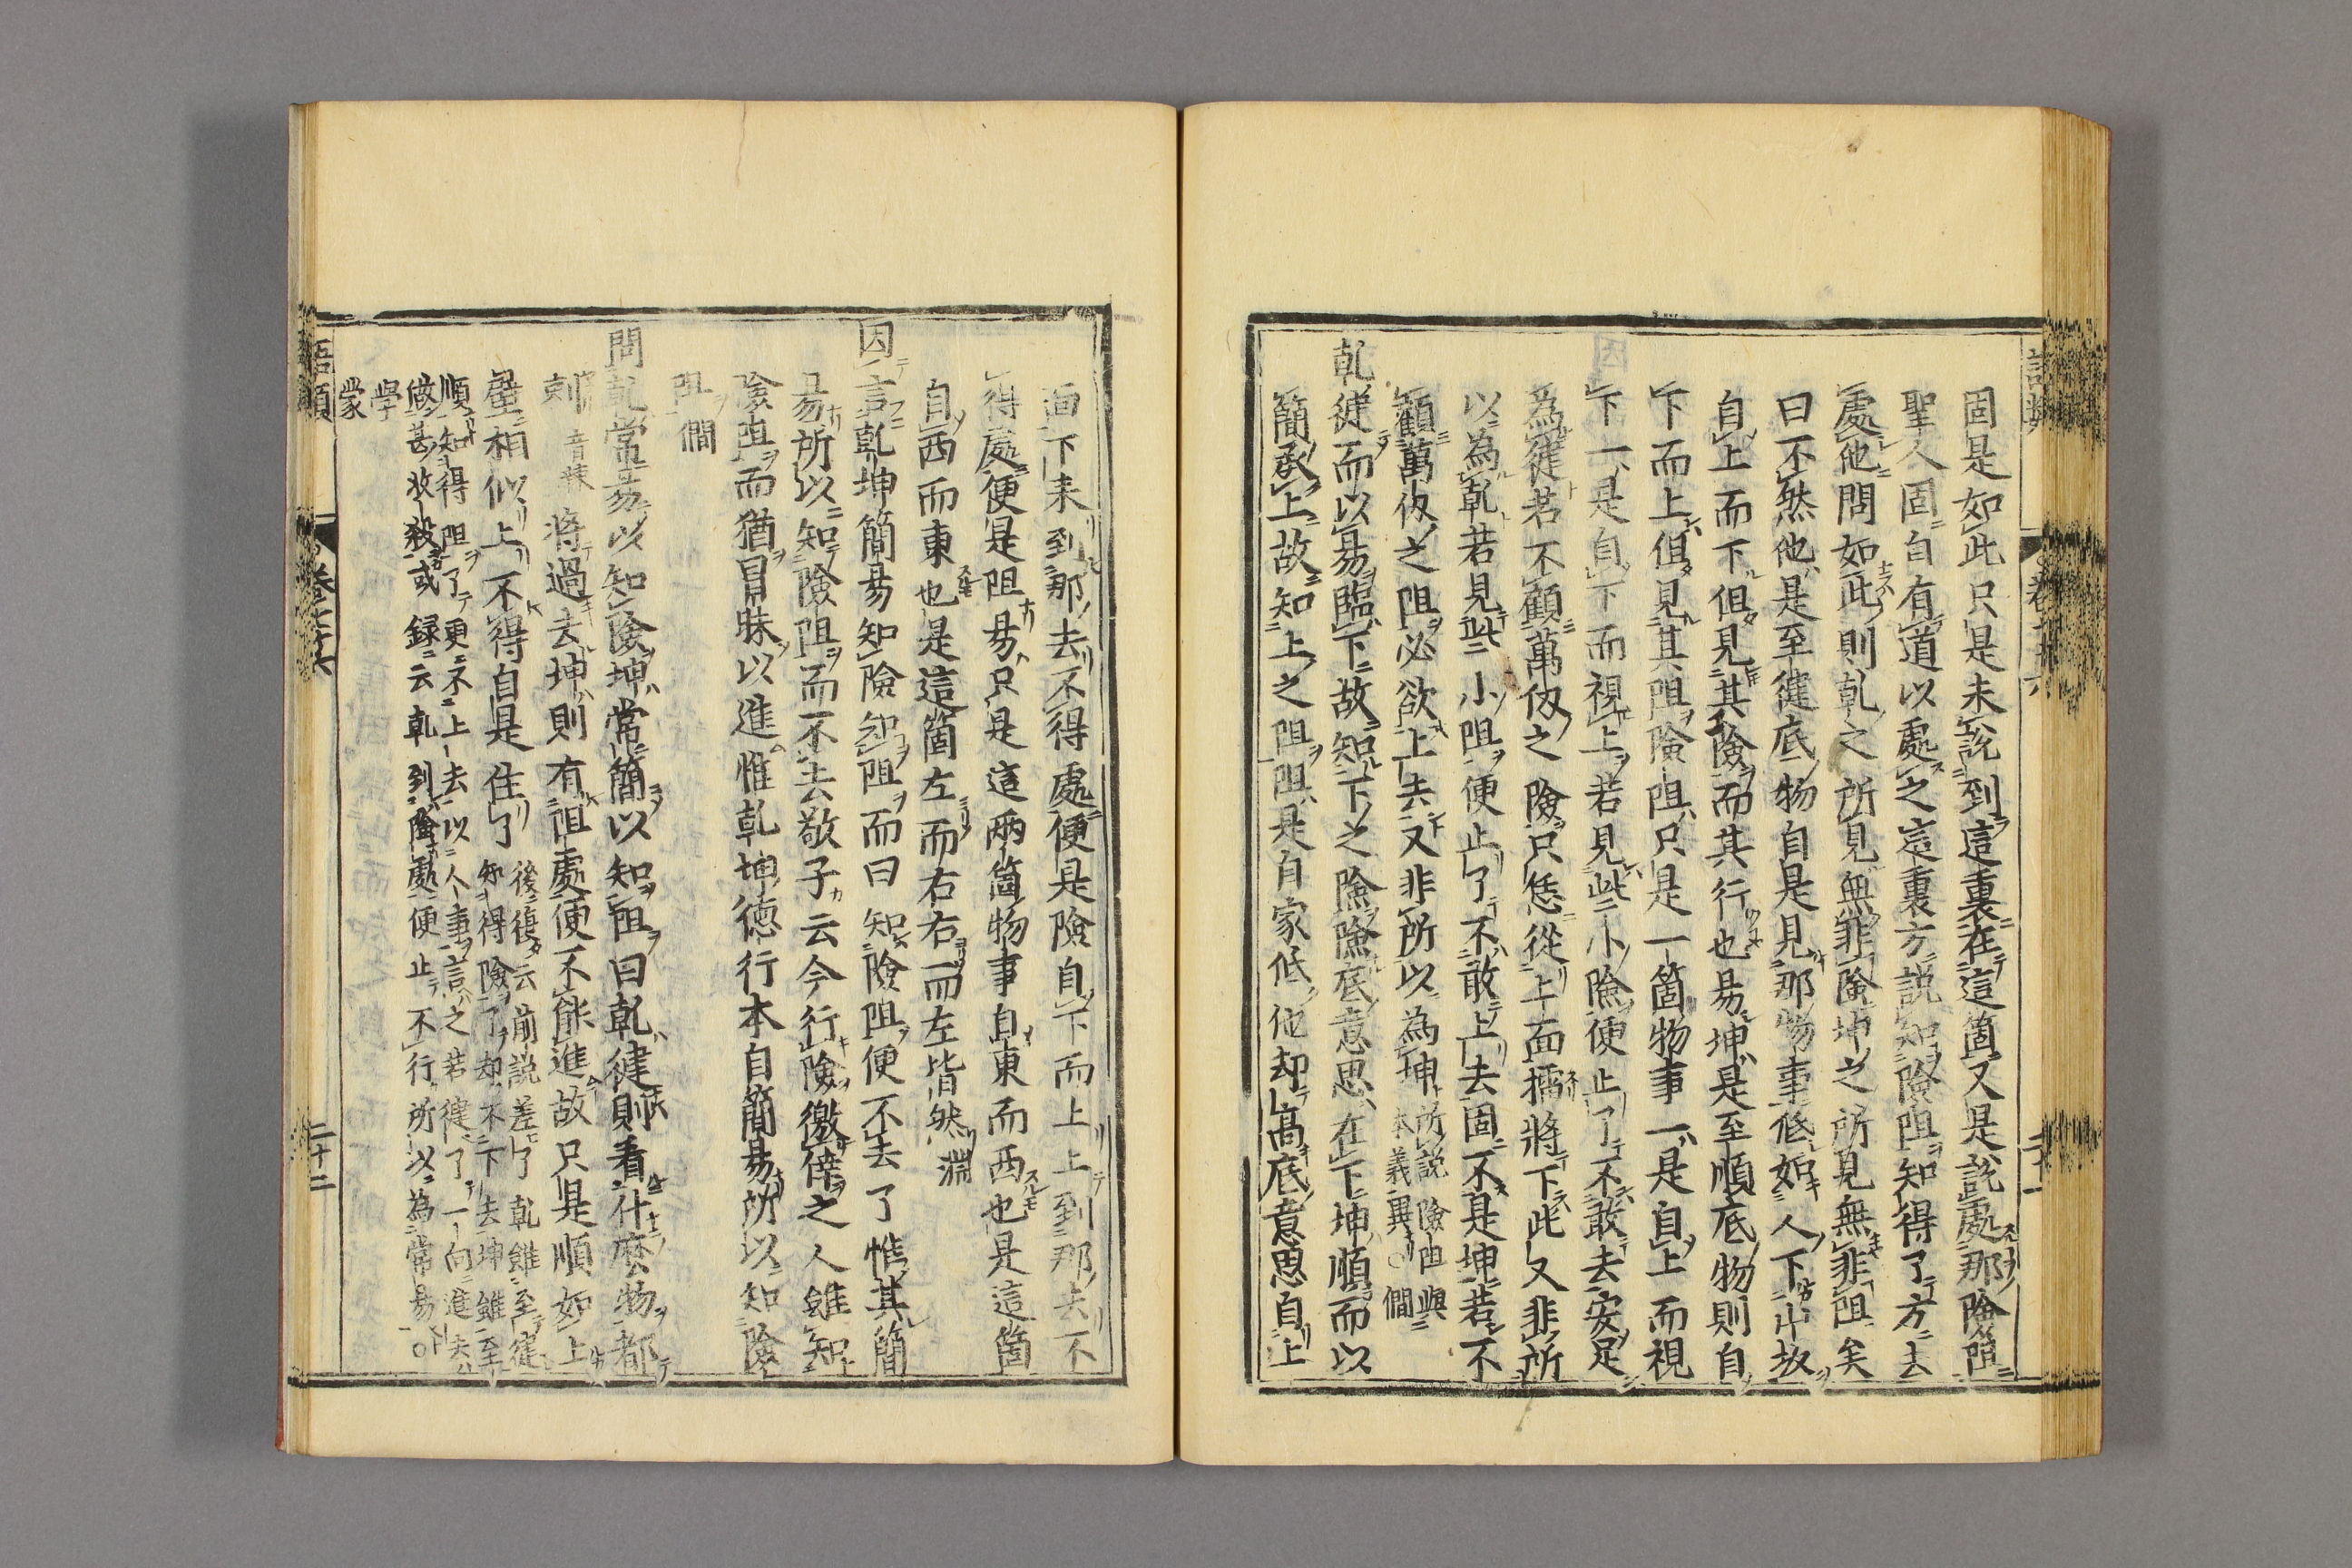 固是如此只是未說到這裏在這箇又是說處那險阻
聖人固自有道以處之這裏方說知險阻知得了方去
處他問如此則乾之所見無非險坤之所見無非阻矣
曰不然他是至健底物自是見那物事低如人下山坂
自上而下但見其險而其行也易坤是至順底物則自
下而上但見其阻險阻只是一箇物事一是自上而視
下一是自下而視上若見些小險便止了不敢去安足
為健若不顧萬仭之險只恁從上面擂將下此又非所
以為乾若見些小阻便止了不敢上去固不是坤若不
顧萬仭之阻必欲上去又非所以為坤所說險阻與本義異○僩
乾健而以易臨下故知下之險險底意思在下坤順而以
簡承上故知上之阻阻是自家低他却高底意思自上
面下来到那去不得處便是險自下而上上到那去不
得處便是阻易只是這兩箇物事自東而西也是這箇
自西而東也是這箇左而右右而左皆然淵
因言乾坤簡易知險知阻而曰知險阻便不去了惟其簡
易所以知險阻而不去敬子云今行險徼倖之人雖知
險阻而猶冒昧以進惟乾坤德行本自簡易所以知險
阻僩
問乾常易以知險坤常簡以知阻曰乾健則看什麽物都
剌音辣將過去坤則有阻處便不能進故只是順如上
壁相似上不得自是住了後復云前說差了乾雖至健
知得險了却不下去坤雖至
順知得阻了更不上去以人事言之若健了一向進去
做甚收殺或錄云乾到險處便止不行所以為常易○
學
蒙
語類
卷七十六
二十二